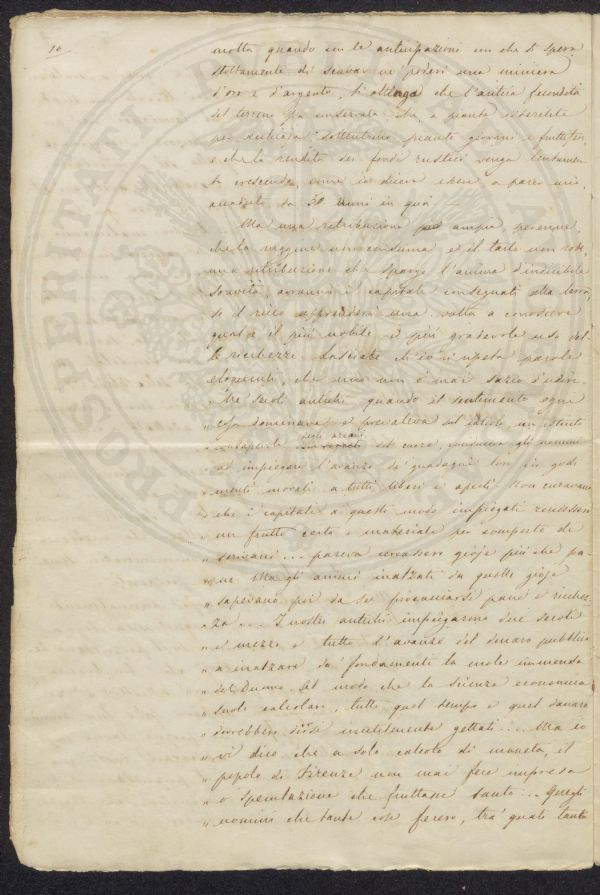 10
molta quando con le anticipazioni con che si spera
stoltamente di scavar ne' poderi una miniera
d'oro e d'argento, si ottenga che l'antica fecondità
del terreno sia conservata, che a piante isterilite
per vecchiaia sottentrino piante giovani e fruttifere,
e che la rendita dei fondi rustici venga lentamen
te crescendo, come io diceva essere, a parer mio,
accaduto da 30 anni in qua. —
Ma una retribuzione più ampia, perenne,
che la ruggine non consuma e il tarlo non rode,
una retribuzione che sparge l'anima d'indicibile
soavità, avranno i capitali consegnati alla terra,
se il ricco apprenderà una volta a conoscere
qual è il più nobile, il più gradevole uso del
le ricchezze. Lasciate ch'io ripeta parole
eloquenti, che uno non è mai sazio d'udire.
"Nei secoli antichi quando il sentimento ogni
cosa dominava e prevaleva sul calcolo, un istinto
" consapevole degli arcani del cuore, conduceva gli uomini
" ad impiegare l'avanzo de' guadagni loro in godi
" menti morali a tutti liberi e aperti. Non curavano
" che i capitali a questo modo impiegati rendessero
" un frutto certo e materiale per conforto de
" scrivani ... pareva cercassero gioje più che pa-
" ne. Ma gli animi inalzati da quelle gioje
" sapevano poi da se procacciarsi pane e ricchez-
" za ... I nostri antichi impiegarono due secoli
" e mezzo e tutto l'avanzo del denaro pubblico
" a inalzare da' fondamenti la mole immensa
" del Duomo. Al modo che la scienza economica
" suole calcolare, tutto quel tempo e quel danaro
" dovrebbero dirsi inutilmente gettati ... Ma io
" vi dico, che a solo calcolo di moneta, il
" popolo di Firenze non mai fece impresa
" o speculazione che fruttasse tanto ... Quegli
" uomini che tante cose fecero, tra' quali tanto
PROSPERITATI PUBLICAE